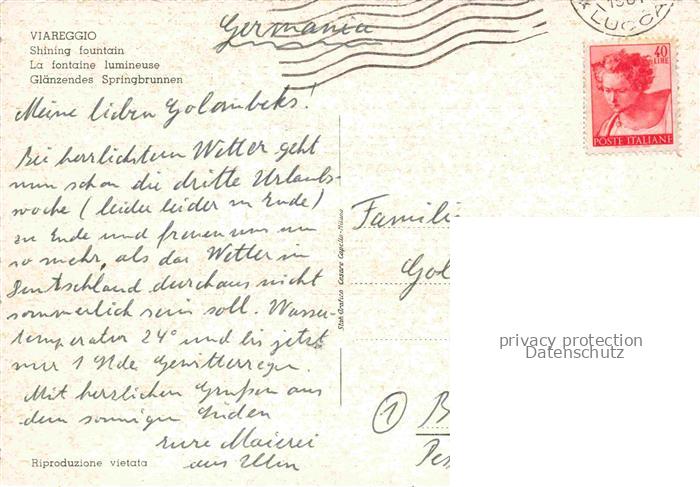 VIAREGGIO
Shining fountain
La fontaine lumineuse
Glänzendes Springbrunnen
Germania
LUCCA
40
LIRE
POSTE ITALIANE
Meine lieben Golombeks!
Bei herrlichstem Wetter geht
nun schon die dritte Urlaubs-
woche (leider leider zu Ende)
zu Ende und freuen uns um
so mehr, als das Wetter in
Deutschland durchaus nicht
sommerlich sein soll. Wasser-
temperatur 24° und bis jetzt
nur 1 Stde Gewitterregen.
Mit herzlichen Grüßen aus
dem sonnigen Süden
eure Maierei
aus Ulm
Familie
Gol
1 B
Riproduzione vietata
privacy protection
Datenschutz